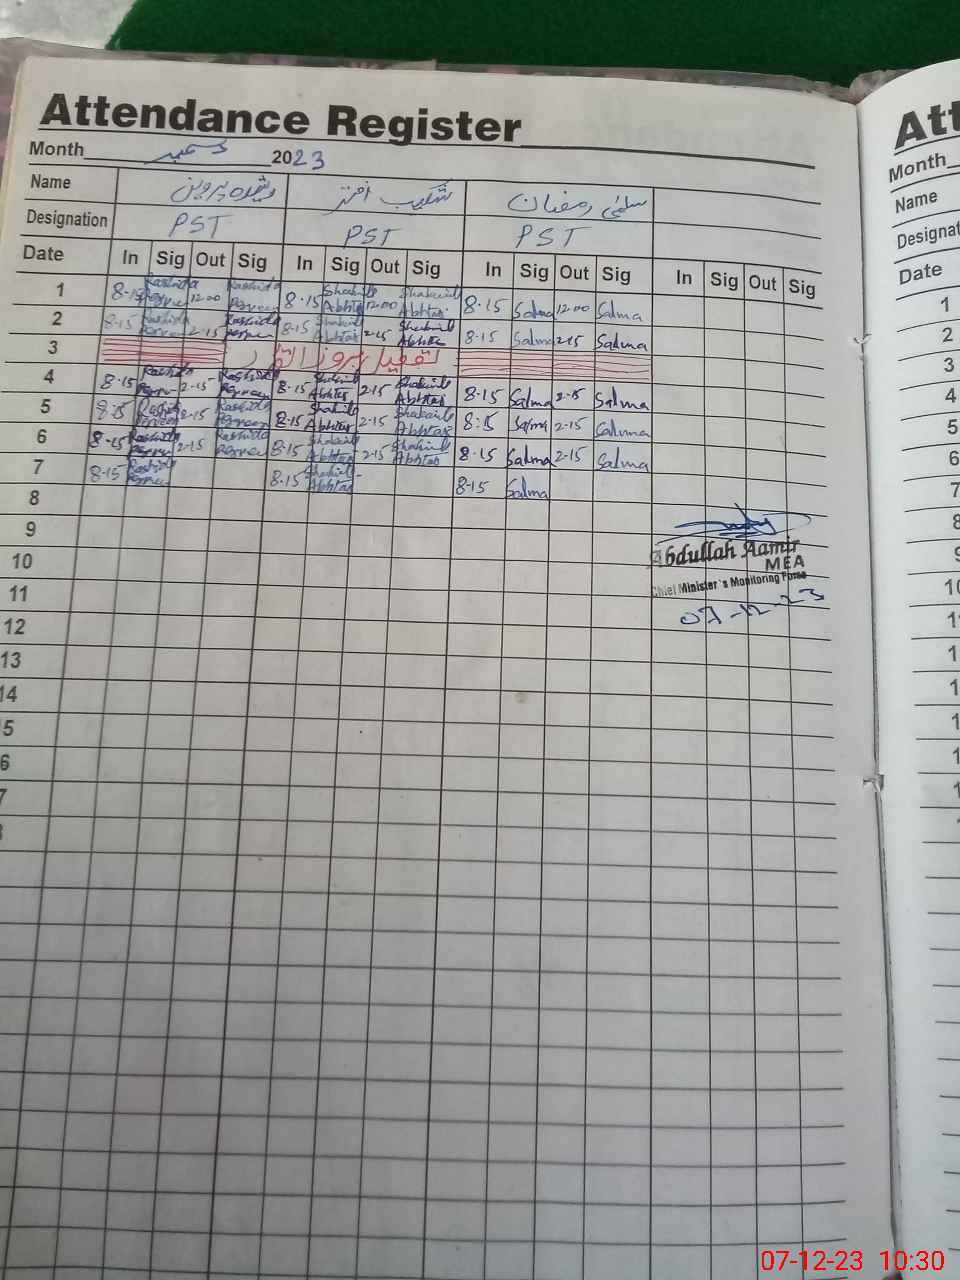 Attendance Register
Month دسمبر 2023
Name رشیدہ پروین شکیب اختر سلمیٰ رمضان
Designation PST PST PST
Date In Sig Out Sig In Sig Out Sig In Sig Out Sig In Sig Out Sig
1 8-15 Rashida Perveen 12:00 Rashida Perveen 8-15 Shakaib Akhtar 12:00 Shakaib Akhtar 8-15 Salma 12:00 Salma
2 8-15 Rashida Perveen 2-15 Rashida Perveen 8-15 Shakaib Akhtar 2-15 Shakaib Akhtar 8-15 Salma 2-15 Salma
3 تعطیل بروز اتوار
4 8-15 Rashida Perveen 2-15 Rashida Perveen 8-15 Shakaib Akhtar 2-15 Shakaib Akhtar 8-15 Salma 2-15 Salma
5 8-15 Rashida Perveen 8-15 Rashida Perveen 8-15 Shakaib Akhtar 2-15 Shakaib Akhtar 8:15 Salma 2-15 Salma
6 8-15 Rashida Perveen 2-15 Rashida Perveen 8-15 Shakaib Akhtar 2-15 Shakaib Akhtar 8-15 Salma 2-15 Salma
7 8-15 Rashida Perveen 8-15 Shakaib Akhtar 8-15 Salma
8
9
10
11
12
13
14
5
6
7
Abdullah Aamir
MEA
Chief Minister's Monitoring Force
07-12-23
Att
Month
Name
Designat
Date
1
2
3
4
5
6
7
8
9
10
1
1
1
1
1
1
1
07-12-23 10:30